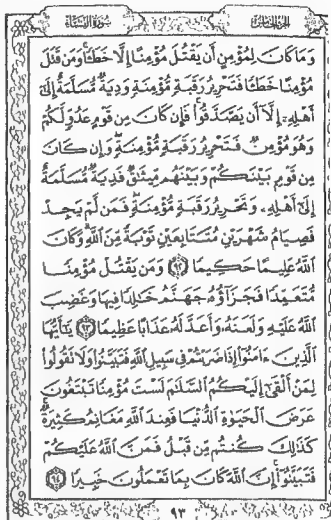 سورة النساء
الجزء الخامس
وَمَا كَانَ لِمُؤْمِنٍ أَن يَقْتُلَ مُؤْمِنًا إِلَّا خَطَـًٔا وَمَن قَتَلَ
مُؤْمِنًا خَطَـًٔا فَتَحْرِيرُ رَقَبَةٍ مُّؤْمِنَةٍ وَدِيَةٌ مُّسَلَّمَةٌ إِلَىٰٓ
أَهْلِهِۦٓ إِلَّآ أَن يَصَّدَّقُوا۟ ۚ فَإِن كَانَ مِن قَوْمٍ عَدُوٍّ لَّكُمْ
وَهُوَ مُؤْمِنٌ فَتَحْرِيرُ رَقَبَةٍ مُّؤْمِنَةٍ ۖ وَإِن كَانَ
مِن قَوْمٍۭ بَيْنَكُمْ وَبَيْنَهُم مِّيثَٰقٌ فَدِيَةٌ مُّسَلَّمَةٌ
إِلَىٰٓ أَهْلِهِۦ وَتَحْرِيرُ رَقَبَةٍ مُّؤْمِنَةٍ ۖ فَمَن لَّمْ يَجِدْ
فَصِيَامُ شَهْرَيْنِ مُتَتَابِعَيْنِ تَوْبَةً مِّنَ ٱللَّهِ ۗ وَكَانَ
ٱللَّهُ عَلِيمًا حَكِيمًا ﴿٩٢﴾ وَمَن يَقْتُلْ مُؤْمِنًا
مُّتَعَمِّدًا فَجَزَآؤُهُۥ جَهَنَّمُ خَٰلِدًا فِيهَا وَغَضِبَ
ٱللَّهُ عَلَيْهِ وَلَعَنَهُۥ وَأَعَدَّ لَهُۥ عَذَابًا عَظِيمًا ﴿٩٣﴾ يَٰٓأَيُّهَا
ٱلَّذِينَ ءَامَنُوٓا۟ إِذَا ضَرَبْتُمْ فِى سَبِيلِ ٱللَّهِ فَتَبَيَّنُوا۟ وَلَا تَقُولُوا۟
لِمَنْ أَلْقَىٰٓ إِلَيْكُمُ ٱلسَّلَٰمَ لَسْتَ مُؤْمِنًا تَبْتَغُونَ
عَرَضَ ٱلْحَيَوٰةِ ٱلدُّنْيَا فَعِندَ ٱللَّهِ مَغَانِمُ كَثِيرَةٌ ۚ
كَذَٰلِكَ كُنتُم مِّن قَبْلُ فَمَنَّ ٱللَّهُ عَلَيْكُمْ
فَتَبَيَّنُوٓا۟ ۚ إِنَّ ٱللَّهَ كَانَ بِمَا تَعْمَلُونَ خَبِيرًا ﴿٩٤﴾
٩٣